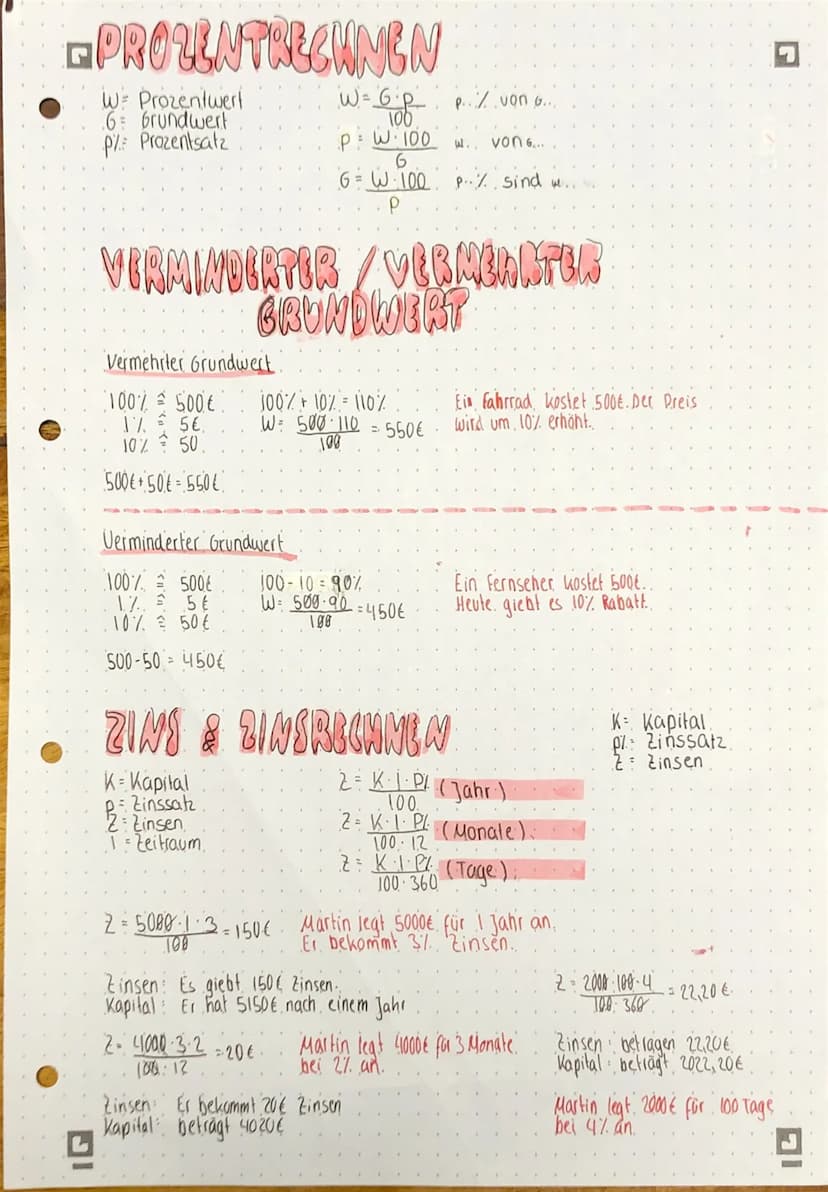 PROZENTRECHNEN
W= Prozentwert
G= Grundwert
p%= Prozentsatz
W= G·p/100 p..% von G..
p= W·100/G w.. von G...
G= W·100/p p..% sind w..
VERMINDERTER / VERMEHRTER
GRUNDWERT
Vermehrter Grundwert
100% ≙ 500€
1% ≙ 5€
10% ≙ 50
100% + 10% = 110%
W= 500·110/100 = 550€
Ein Fahrrad kostet 500€. Der Preis
wird um 10% erhöht.
500€+50€=550€
Verminderter Grundwert
100% ≙ 500€
1% ≙ 5€
10% ≙ 50€
100-10 = 90%
W= 500·90/100 = 450€
Ein Fernseher kostet 500€.
Heute giebt es 10% Rabatt.
500-50 = 450€
ZINS & ZINSRECHNEN
K= Kapital
p%= Zinssatz
Z= Zinsen
K= Kapital
p= Zinssatz
Z= Zinsen
i = Zeitraum
Z= K·i·p%/100 (Jahr)
Z= K·i·p%/100·12 (Monate)
Z= K·i·p%/100·360 (Tage)
Z= 5000·1·3/100 = 150€
Martin legt 5000€ für 1 Jahr an.
Er bekommt 3% Zinsen.
Zinsen: Es giebt 150€ Zinsen.
Kapital: Er hat 5150€ nach einem Jahr
Z= 2000·100·4/100·360 = 22,20€
Z= 4000·3·2/100·12 = 20€
Martin legt 4000€ für 3 Monate
bei 2% an.
Zinsen: betragen 22,20€
Kapital: beträgt 2022,20€
Zinsen: Er bekommt 20€ Zinsen
Kapital: beträgt 4020€
Martin legt 2000€ für 100 Tage
bei 4% an.